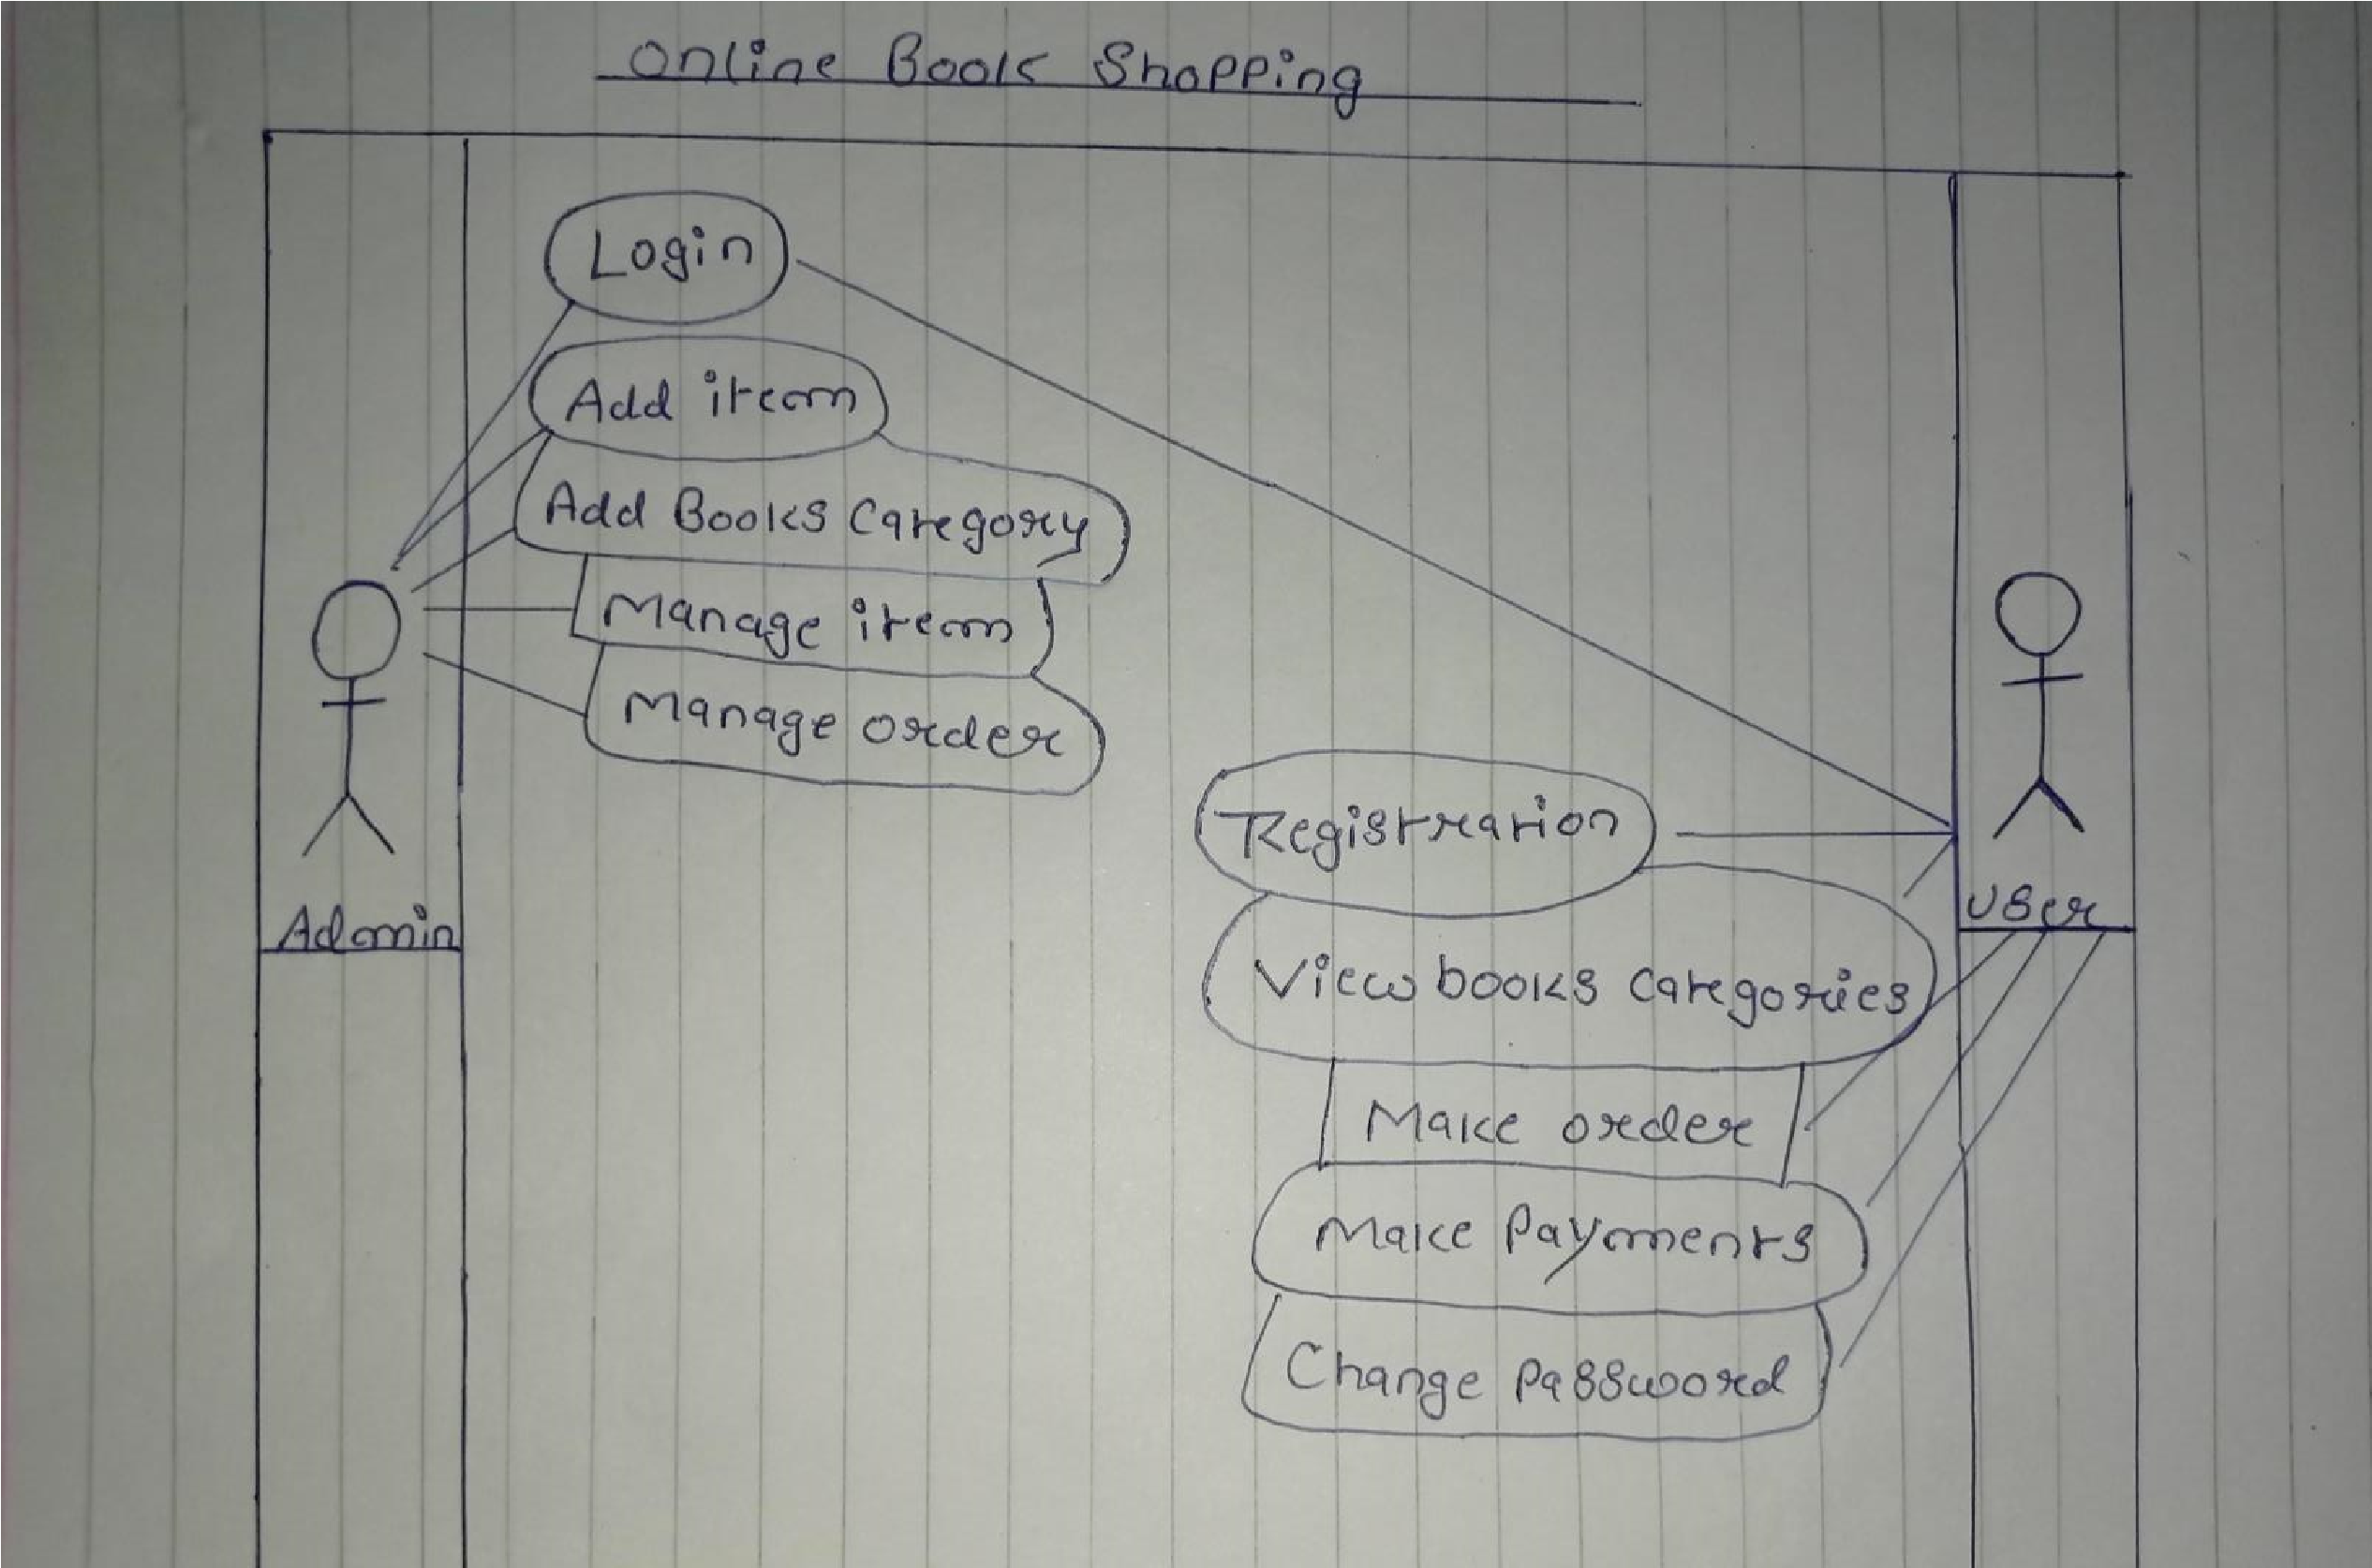 Online Book Shopping
Login
Add item
Add Books Category
Manage item
Manage order
Admin
Registration
User
View books categories
Make order
Make Payments
Change Password